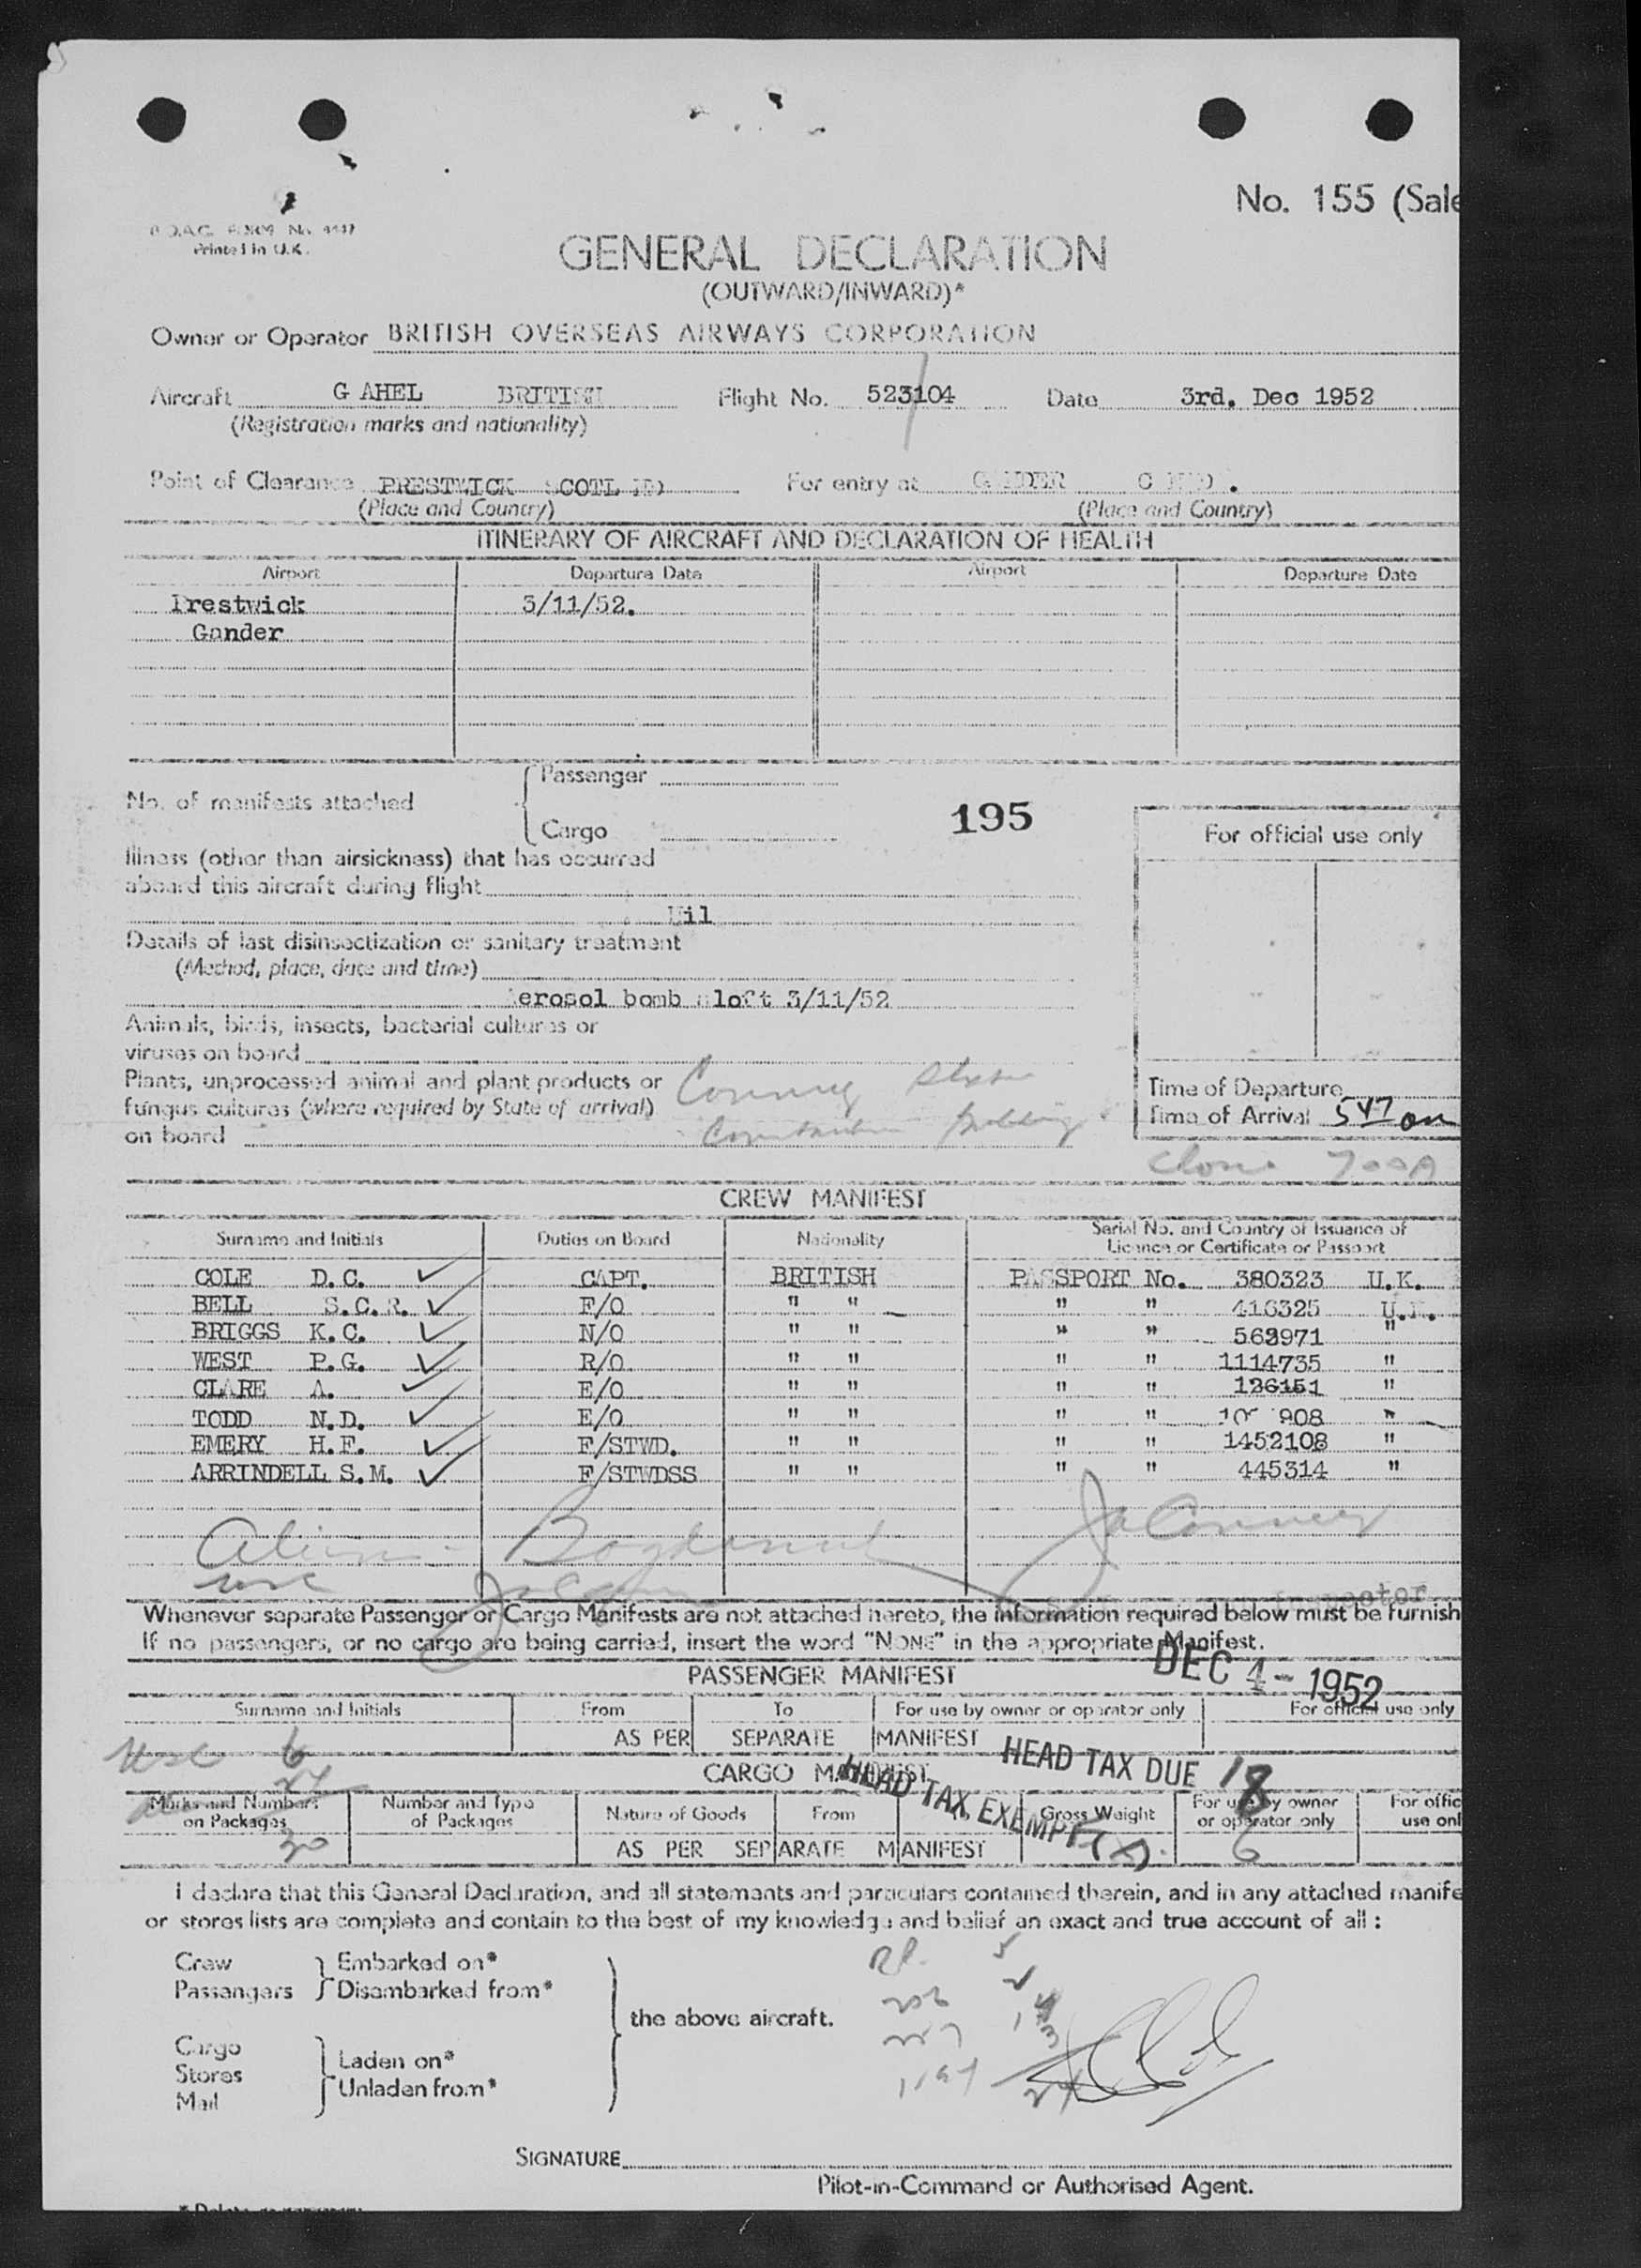 No. 155 (Sale
B.O.A.C. FORM No. 4447
Printed in U.K.
GENERAL DECLARATION
(OUTWARD/INWARD)*
Owner or Operator BRITISH OVERSEAS AIRWAYS CORPORATION
Aircraft G AHEL BRITISH Flight No. 523104 Date 3rd. Dec 1952
(Registration marks and nationality)
Point of Clearance PRESTWICK SCOTLAND For entry at GANDER
(Place and Country) (Place and Country)
ITINERARY OF AIRCRAFT AND DECLARATION OF HEALTH
Airport Departure Date Airport Departure Date
Prestwick 3/11/52.
Gander
Passenger
No. of manifests attached
195
Cargo
For official use only
Illness (other than airsickness) that has occurred
aboard this aircraft during flight
Nil
Details of last disinsectization or sanitary treatment
(Method, place, date and time)
Aerosol bomb aloft 3/11/52
Animals, birds, insects, bacterial cultures or
viruses on board
Plants, unprocessed animal and plant products or
fungus cultures (where required by State of arrival)
on board
Time of Departure
Time of Arrival 547
CREW MANIFEST
Surname and Initials Duties on Board Nationality Serial No. and Country of Issuance of
Licence or Certificate or Passport
COLE D.C. CAPT. BRITISH PASSPORT No. 380323 U.K.
BELL S.C.R. F/O " " " " 416325 U.K.
BRIGGS K.C. N/O " " " " "
WEST P.G. R/O " " " " 1114735 "
CLARE A. E/O " " " " 126151 "
TODD N.D. E/O " " " " 908 "
EMERY H.F. F/STWD. " " " " 1452108 "
ARRINDELL S.M. F/STWDSS " " " " 445314 "
Inspector
Whenever separate Passenger or Cargo Manifests are not attached hereto, the information required below must be furnish
If no passengers, or no cargo are being carried, insert the word "NONE" in the appropriate Manifest.
DEC 4 - 1952
PASSENGER MANIFEST
Surname and Initials From To For use by owner or operator only For official use only
AS PER SEPARATE MANIFEST
HEAD TAX DUE 18
CARGO MANIFEST
HEAD TAX EXEMPT
Marks and Numbers on Packages Number and Type of Packages Nature of Goods From Gross Weight For use by owner or operator only For offic use onl
AS PER SEPARATE MANIFEST
6
30
I declare that this General Declaration, and all statements and particulars contained therein, and in any attached manife
or stores lists are complete and contain to the best of my knowledge and belief an exact and true account of all :
Crew Embarked on*
Passengers Disembarked from*
the above aircraft.
Cargo
Stores Laden on*
Mail Unladen from*
SIGNATURE
Pilot-in-Command or Authorised Agent.